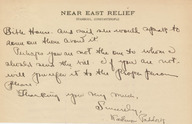 NEAR EAST RELIEF
Bible House. And said she would appeal to
some one there about it.
Perhaps you are not the one to whom I
should send this and if you are not,
will you refer it to the proper person
please.
Thanking you very much,
Sincerely,